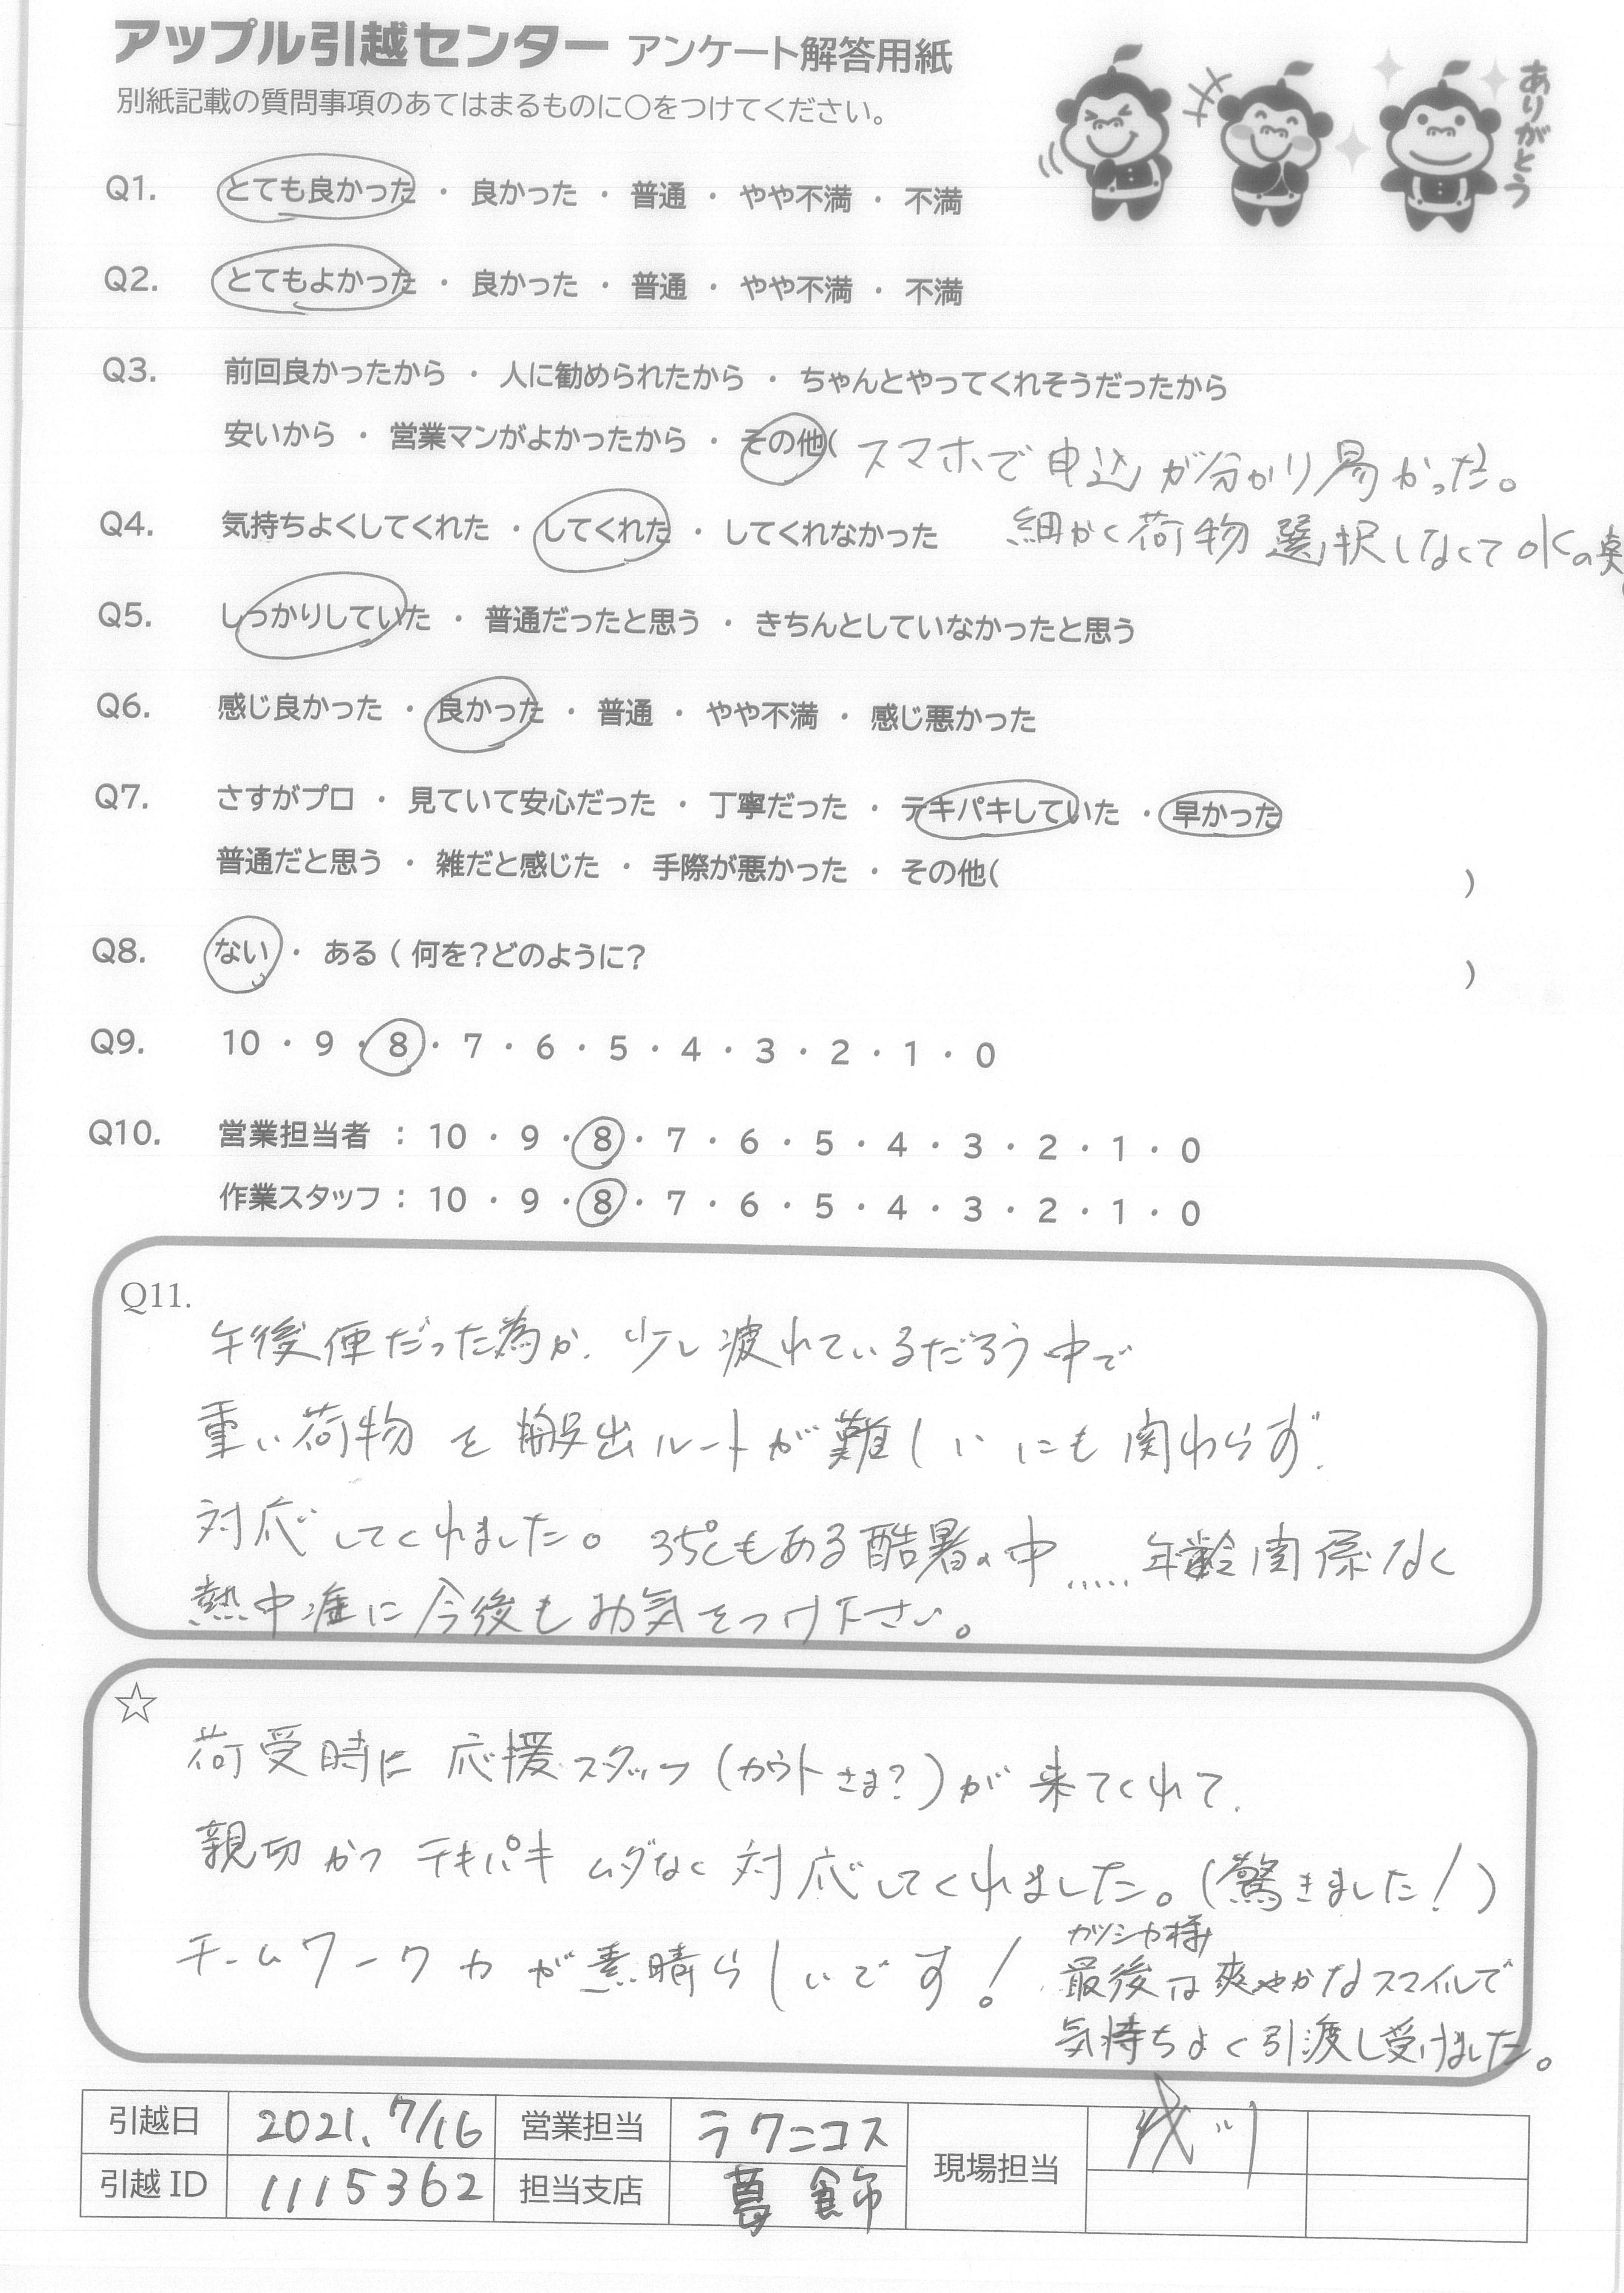 アップル引越センター アンケート解答用紙
別紙記載の質問事項のあてはまるものに〇をつけてください。
ありがとう
Q1. とても良かった ・ 良かった ・ 普通 ・ やや不満 ・ 不満
Q2. とてもよかった ・ 良かった ・ 普通 ・ やや不満 ・ 不満
Q3. 前回良かったから ・ 人に勧められたから ・ ちゃんとやってくれそうだったから
安いから ・ 営業マンがよかったから ・ その他( スマホで申込が分かり易かった。
Q4. 気持ちよくしてくれた ・ してくれた ・ してくれなかった 細かく荷物選択しなくてOKの
Q5. しっかりしていた ・ 普通だったと思う ・ きちんとしていなかったと思う
Q6. 感じ良かった ・ 良かった ・ 普通 ・ やや不満 ・ 感じ悪かった
Q7. さすがプロ ・ 見ていて安心だった ・ 丁寧だった ・ テキパキしていた ・ 早かった
普通だと思う ・ 雑だと感じた ・ 手際が悪かった ・ その他( )
Q8. ない ・ ある ( 何を?どのように? )
Q9. 10 ・ 9 ・ 8 ・ 7 ・ 6 ・ 5 ・ 4 ・ 3 ・ 2 ・ 1 ・ 0
Q10. 営業担当者 : 10 ・ 9 ・ 8 ・ 7 ・ 6 ・ 5 ・ 4 ・ 3 ・ 2 ・ 1 ・ 0
作業スタッフ : 10 ・ 9 ・ 8 ・ 7 ・ 6 ・ 5 ・ 4 ・ 3 ・ 2 ・ 1 ・ 0
Q11.
午後便だった為か、少し疲れているだろう中で
重い荷物を搬出ルートが難しいにも関わらず、
対応してくれました。35℃もある酷暑の中.....年齢関係なく
熱中症に今後もお気をつけ下さい。
☆
荷受時に応援スタッフ(カウトさま?)が来てくれて、
親切かつテキパキムダなく対応してくれました。(驚きました!)
チームワーク力が素晴らしいです!
ガツシカ様
最後は爽やかなスマイルで
気持ちよく引渡し受けました。
引越日 2021. 7/16 営業担当 ラクニコス 現場担当
引越ID 1115362 担当支店 葛飾